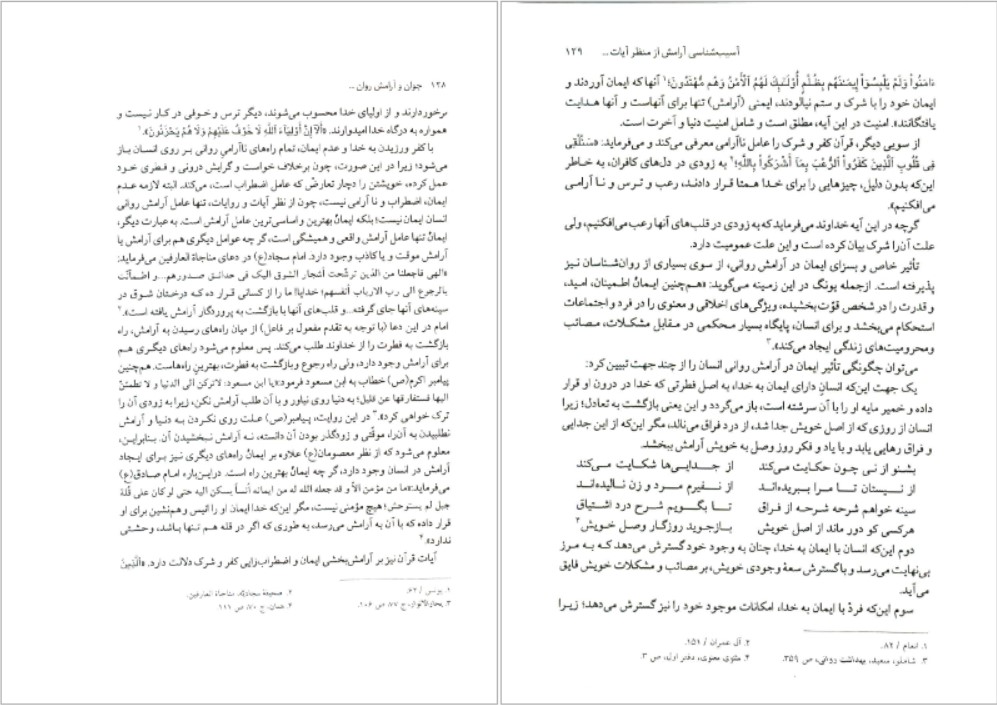 ۱۲۸ جوان و آرامش روان ..
برخوردارند و از اولیای خدا محسوب می‌شوند، دیگر ترس و خوفی در کار نیست و
همواره به درگاه خدا امیدوارند. «أَلَآ إِنَّ أَوْلِيَآءَ ٱللَّهِ لَا خَوْفٌ عَلَيْهِمْ وَلَا هُمْ يَحْزَنُونَ».۱
با کفر ورزیدن به خدا و عدم ایمان، تمام راه‌های ناآرامی روانی بر روی انسان باز
می‌شود؛ زیرا در این صورت، چون برخلاف خواست و گرایش درونی و فطری خود
عمل کرده، خویشتن را دچار تعارض که عامل اضطراب است، می‌کند. البته لازمه عدم
ایمان، اضطراب و نا آرامی نیست، چون از نظر آیات و روایات، تنها عامل آرامش روانی
انسان ایمان نیست؛ بلکه ایمان بهترین و اساسی‌ترین عامل آرامش است. به عبارت دیگر،
ایمان تنها عامل آرامش واقعی و همیشگی است، گر چه عوامل دیگری هم برای آرامش یا
آرامش موقت و یا کاذب وجود دارد. امام سجاد(ع) در دعای مناجاة العارفین می‌فرماید:
«الهی فاجعلنا من الذین ترشّحت أشجار الشوق الیک فی حدائق صدورهم...و اطمأنّت
بالرجوع الی رب الارباب أنفسهم؛ خدایا! ما را از کسانی قرار ده که درختان شوق در
سینه‌های آنها جای گرفته... و قلب‌های آنها با بازگشت به پروردگار آرامش یافته است».۲
امام در این دعا (با توجه به تقدم مفعول بر فاعل) از میان راه‌های رسیدن به آرامش، راه
بازگشت به فطرت را از خداوند طلب می‌کند. پس معلوم می‌شود راه‌های دیگری هم
برای آرامش وجود دارد، ولی راه رجوع و بازگشت به فطرت، بهترین راه‌هاست. هم‌چنین
پیامبر اکرم(ص) خطاب به ابن مسعود فرمود:«یا ابن مسعود: لاترکن الی الدنیا و لا تطمئنّ
الیها فستفارقها عن قلیل؛ به دنیا روی نیاور و با آن طلب آرامش نکن، زیرا به زودی آن را
ترک خواهی کرد».۳ در این روایت، پیامبر(ص) علت روی نکردن به دنیا و آرامش
نطلبیدن به آن‌را، موقّتی و زودگذر بودن آن دانسته، نه آرامش نبخشیدن آن. بنابراین،
معلوم می‌شود که از نظر معصومان(ع) علاوه بر ایمان راه‌های دیگری نیز برای ایجاد
آرامش در انسان وجود دارد، گر چه ایمان بهترین راه است. دراین‌باره امام صادق(ع)
می‌فرماید:«ما من مؤمن الاّ و قد جعله الله له من ایمانه أنساً یسکن الیه حتی لو کان علی قلّة
جبل لم یستوحش؛ هیچ مؤمنی نیست، مگر این‌که خدا ایمان او را انیس و هم‌نشین برای او
قرار داده که با آن به آرامش می‌رسد، به طوری که اگر در قله هم تنها باشد، وحشتی
ندارد».۴
آیات قرآن نیز بر آرامش‌بخشی ایمان و اضطراب‌زایی کفر و شرک دلالت دارد. «ٱلَّذِينَ
۱. یونس / ۶۲. ۲. صحیفهٔ سجادیّه، مناجاة العارفین.
۳. بحارالانوار، ج ۷۷، ص ۱۰۶. ۴. همان، ج ۷۰، ص ۱۱۱
آسیب‌شناسی آرامش از منظر آیات .. ۱۲۹
ءَامَنُواْ وَلَمْ يَلْبِسُوٓاْ إِيمَـٰنَهُم بِظُلْمٍ أُوْلَـٰٓئِكَ لَهُمُ ٱلْأَمْنُ وَهُم مُّهْتَدُونَ؛۱ آنها که ایمان آوردند و
ایمان خود را با شرک و ستم نیالودند، ایمنی (آرامش) تنها برای آنهاست و آنها هدایت
یافتگانند». امنیت در این آیه، مطلق است و شامل امنیت دنیا و آخرت است.
از سویی دیگر، قرآن کفر و شرک را عامل ناآرامی معرفی می‌کند و می‌فرماید: «سَنُلْقِى
فِى قُلُوبِ ٱلَّذِينَ كَفَرُواْ ٱلرُّعْبَ بِمَآ أَشْرَكُواْ بِٱللَّهِ؛۲ به زودی در دل‌های کافران، به خاطر
این‌که بدون دلیل، چیزهایی را برای خدا همتا قرار دادند، رعب و ترس و نا آرامی
می‌افکنیم».
گرچه در این آیه خداوند می‌فرماید که به زودی در قلب‌های آنها رعب می‌افکنیم، ولی
علت آن‌را شرک بیان کرده است و این علت عمومیت دارد.
تأثیر خاص و بسزای ایمان در آرامش روانی، از سوی بسیاری از روان‌شناسان نیز
پذیرفته است. ازجمله یونگ در این زمینه می‌گوید: «هم‌چنین ایمان اطمینان، امید،
و قدرت را در شخص قوّت بخشیده، ویژگی‌های اخلاقی و معنوی را در فرد و اجتماعات
استحکام می‌بخشد و برای انسان، پایگاه بسیار محکمی در مقابل مشکلات، مصائب
ومحرومیت‌های زندگی ایجاد می‌کند».۳
می‌توان چگونگی تأثیر ایمان در آرامش روانی انسان را از چند جهت تبیین کرد:
یک جهت این‌که انسانِ دارای ایمان به خدا، به اصل فطرتی که خدا در درون او قرار
داده و خمیر مایه او را با آن سرشته است، باز می‌گردد و این یعنی بازگشت به تعادل؛ زیرا
انسان از روزی که از اصل خویش جدا شد، از درد فراق می‌نالد، مگر این‌که از این جدایی
و فراق رهایی یابد و با یاد و فکر روز وصل به خویش آرامش ببخشد.
بشنو از نی چون حکایت می‌کند از جدایی‌ها شکایت می‌کند
از نیستان تا مرا ببریده‌اند از نفیرم مرد و زن نالیده‌اند
سینه خواهم شرحه شرحه از فراق تا بگویم شرح درد اشتیاق
هرکسی کو دور ماند از اصل خویش بازجوید روزگار وصل خویش۴
دوم این‌که انسان با ایمان به خدا، چنان به وجود خود گسترش می‌دهد که به مرز
بی‌نهایت می‌رسد و با گسترش سعهٔ وجودی خویش، بر مصائب و مشکلات خویش فایق
می‌آید.
سوم این‌که فردْ با ایمان به خدا، امکانات موجود خود را نیز گسترش می‌دهد؛ زیرا
۱. انعام / ۸۲. ۲. آل عمران / ۱۵۱.
۳. شاملو، سعید، بهداشت روانی، ص ۳۵۹. ۴. مثنوی معنوی، دفتر اول، ص ۳.